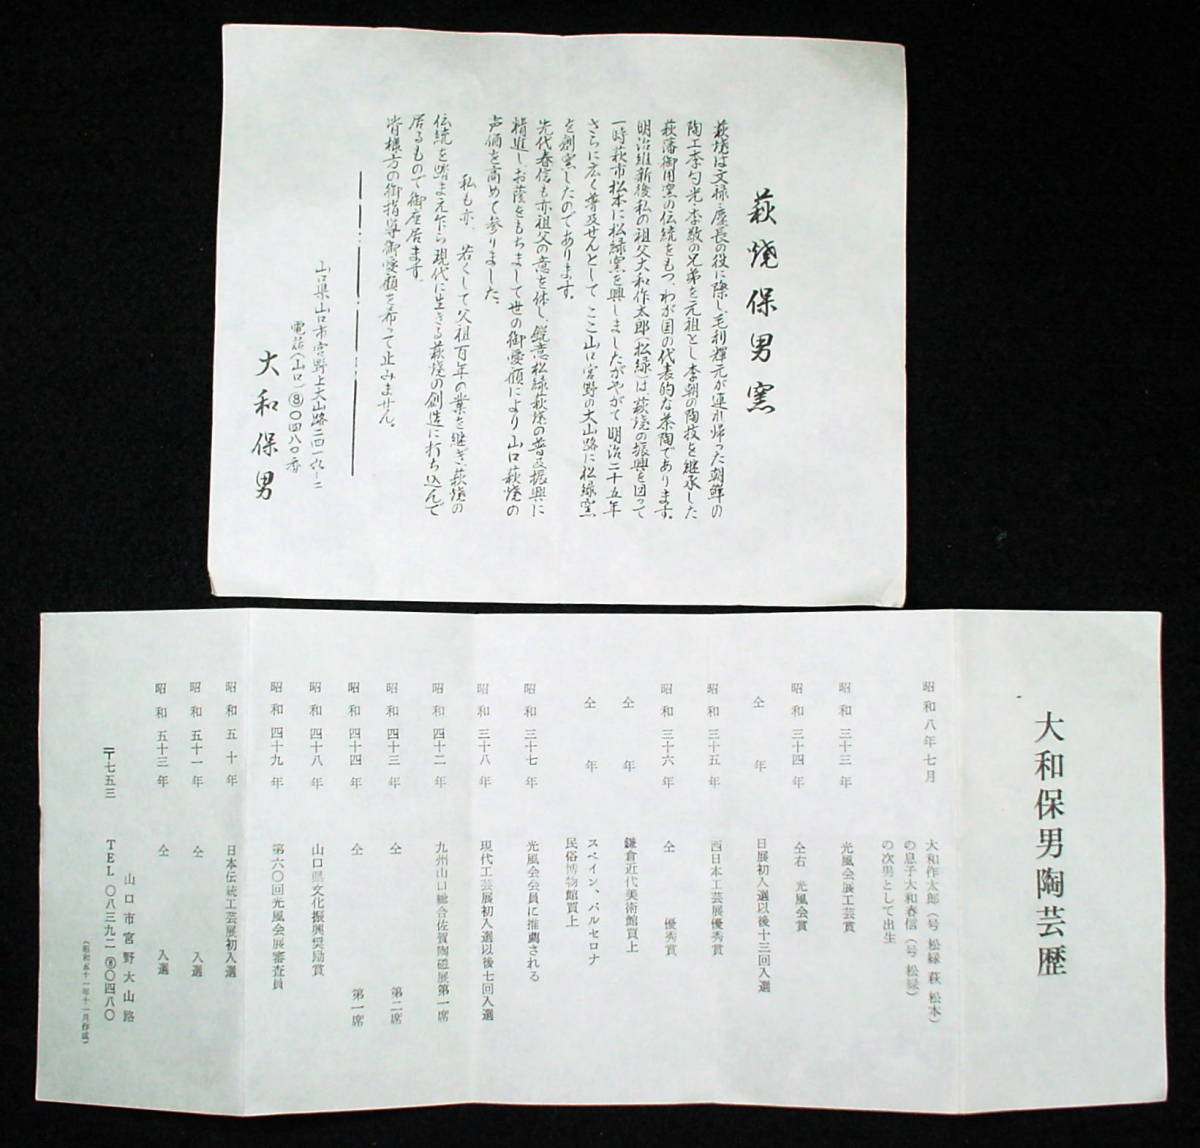 萩焼保男窯
萩焼は文禄・慶長の役に際し、毛利輝元が連れ帰った朝鮮の
陶工李勺光・李敬の兄弟を元祖とし、李朝の陶技を継承した
萩藩御用窯の伝統をもつ、わが国の代表的な茶陶であります。
明治維新後私の祖父大和作太郎(松緑)は、萩焼の振興を図って
一時萩市松本に松緑窯を興しましたがやがて明治二十五年
さらに広く普及せんとして ここ山口宮野の大山路に松緑窯
を創窯したのであります。
先代春信も亦祖父の意を体し、鋭意松緑萩焼の普及振興に
精進しお蔭をもちまして世の御愛顧により山口萩焼の
声価を高めて参りました。
私も亦、若くして父祖百年の業を継ぎ、萩焼の
伝統を踏まえ乍ら現代に生きる萩焼の創造に打ち込んで
居るもので御座居ます。
皆様方の御指導御愛顧を希って止みません。
山口県山口市宮野上大山路二四一九ノ二
電話(山口)⑧〇四八〇番
大和保男
大和保男陶芸歴
昭和八年七月 大和作太郎(号 松緑 萩 松本)
の息子大和春信(号 松緑)
の次男として出生
昭和三十三年 光風会展工芸賞
昭和三十四年 仝右 光風会賞
仝年 日展初入選以後十三回入選
昭和三十五年 西日本工芸展優秀賞
昭和三十六年 仝 優秀賞
仝年 鎌倉近代美術館買上
仝年 スペイン、バルセロナ
民俗博物館買上
昭和三十七年 光風会会員に推薦される
昭和三十八年 現代工芸展初入選以後七回入選
昭和四十二年 九州山口総合佐賀陶磁展第一席
昭和四十三年 仝 第二席
昭和四十四年 仝 第一席
昭和四十八年 山口県文化振興奨励賞
昭和四十九年 第六〇回光風会展審査員
昭和五十年 日本伝統工芸展初入選
昭和五十一年 仝 入選
昭和五十三年 仝 入選
山口市宮野大山路
〒七五三 TEL 〇八三九二⑧〇四八〇
(昭和五十一年十一月作成)